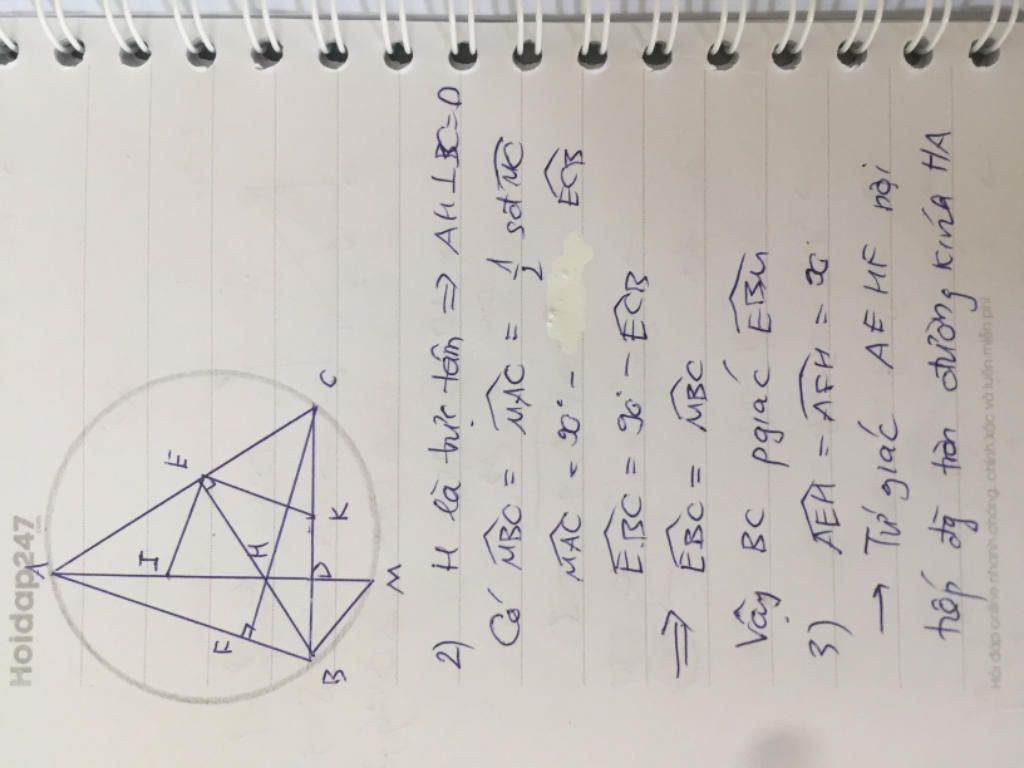 Hoidap247
.com
A
E
I
F
H
B
D
K
C
M
2) H là trực tâm ⇒ AH ⊥ BC = D
Có MBC = MAC = 1/2 sđ MC
MAC = 90° - ECB
EBC = 90° - ECB
⇒ EBC = MBC
Vậy BC pgiác EBM
3) AEH = AFH = 90°
→ Tứ giác AEHF nội
tiếp đg tròn đường kính HA
Hỏi đáp online nhanh chóng, chính xác và luôn miễn phí